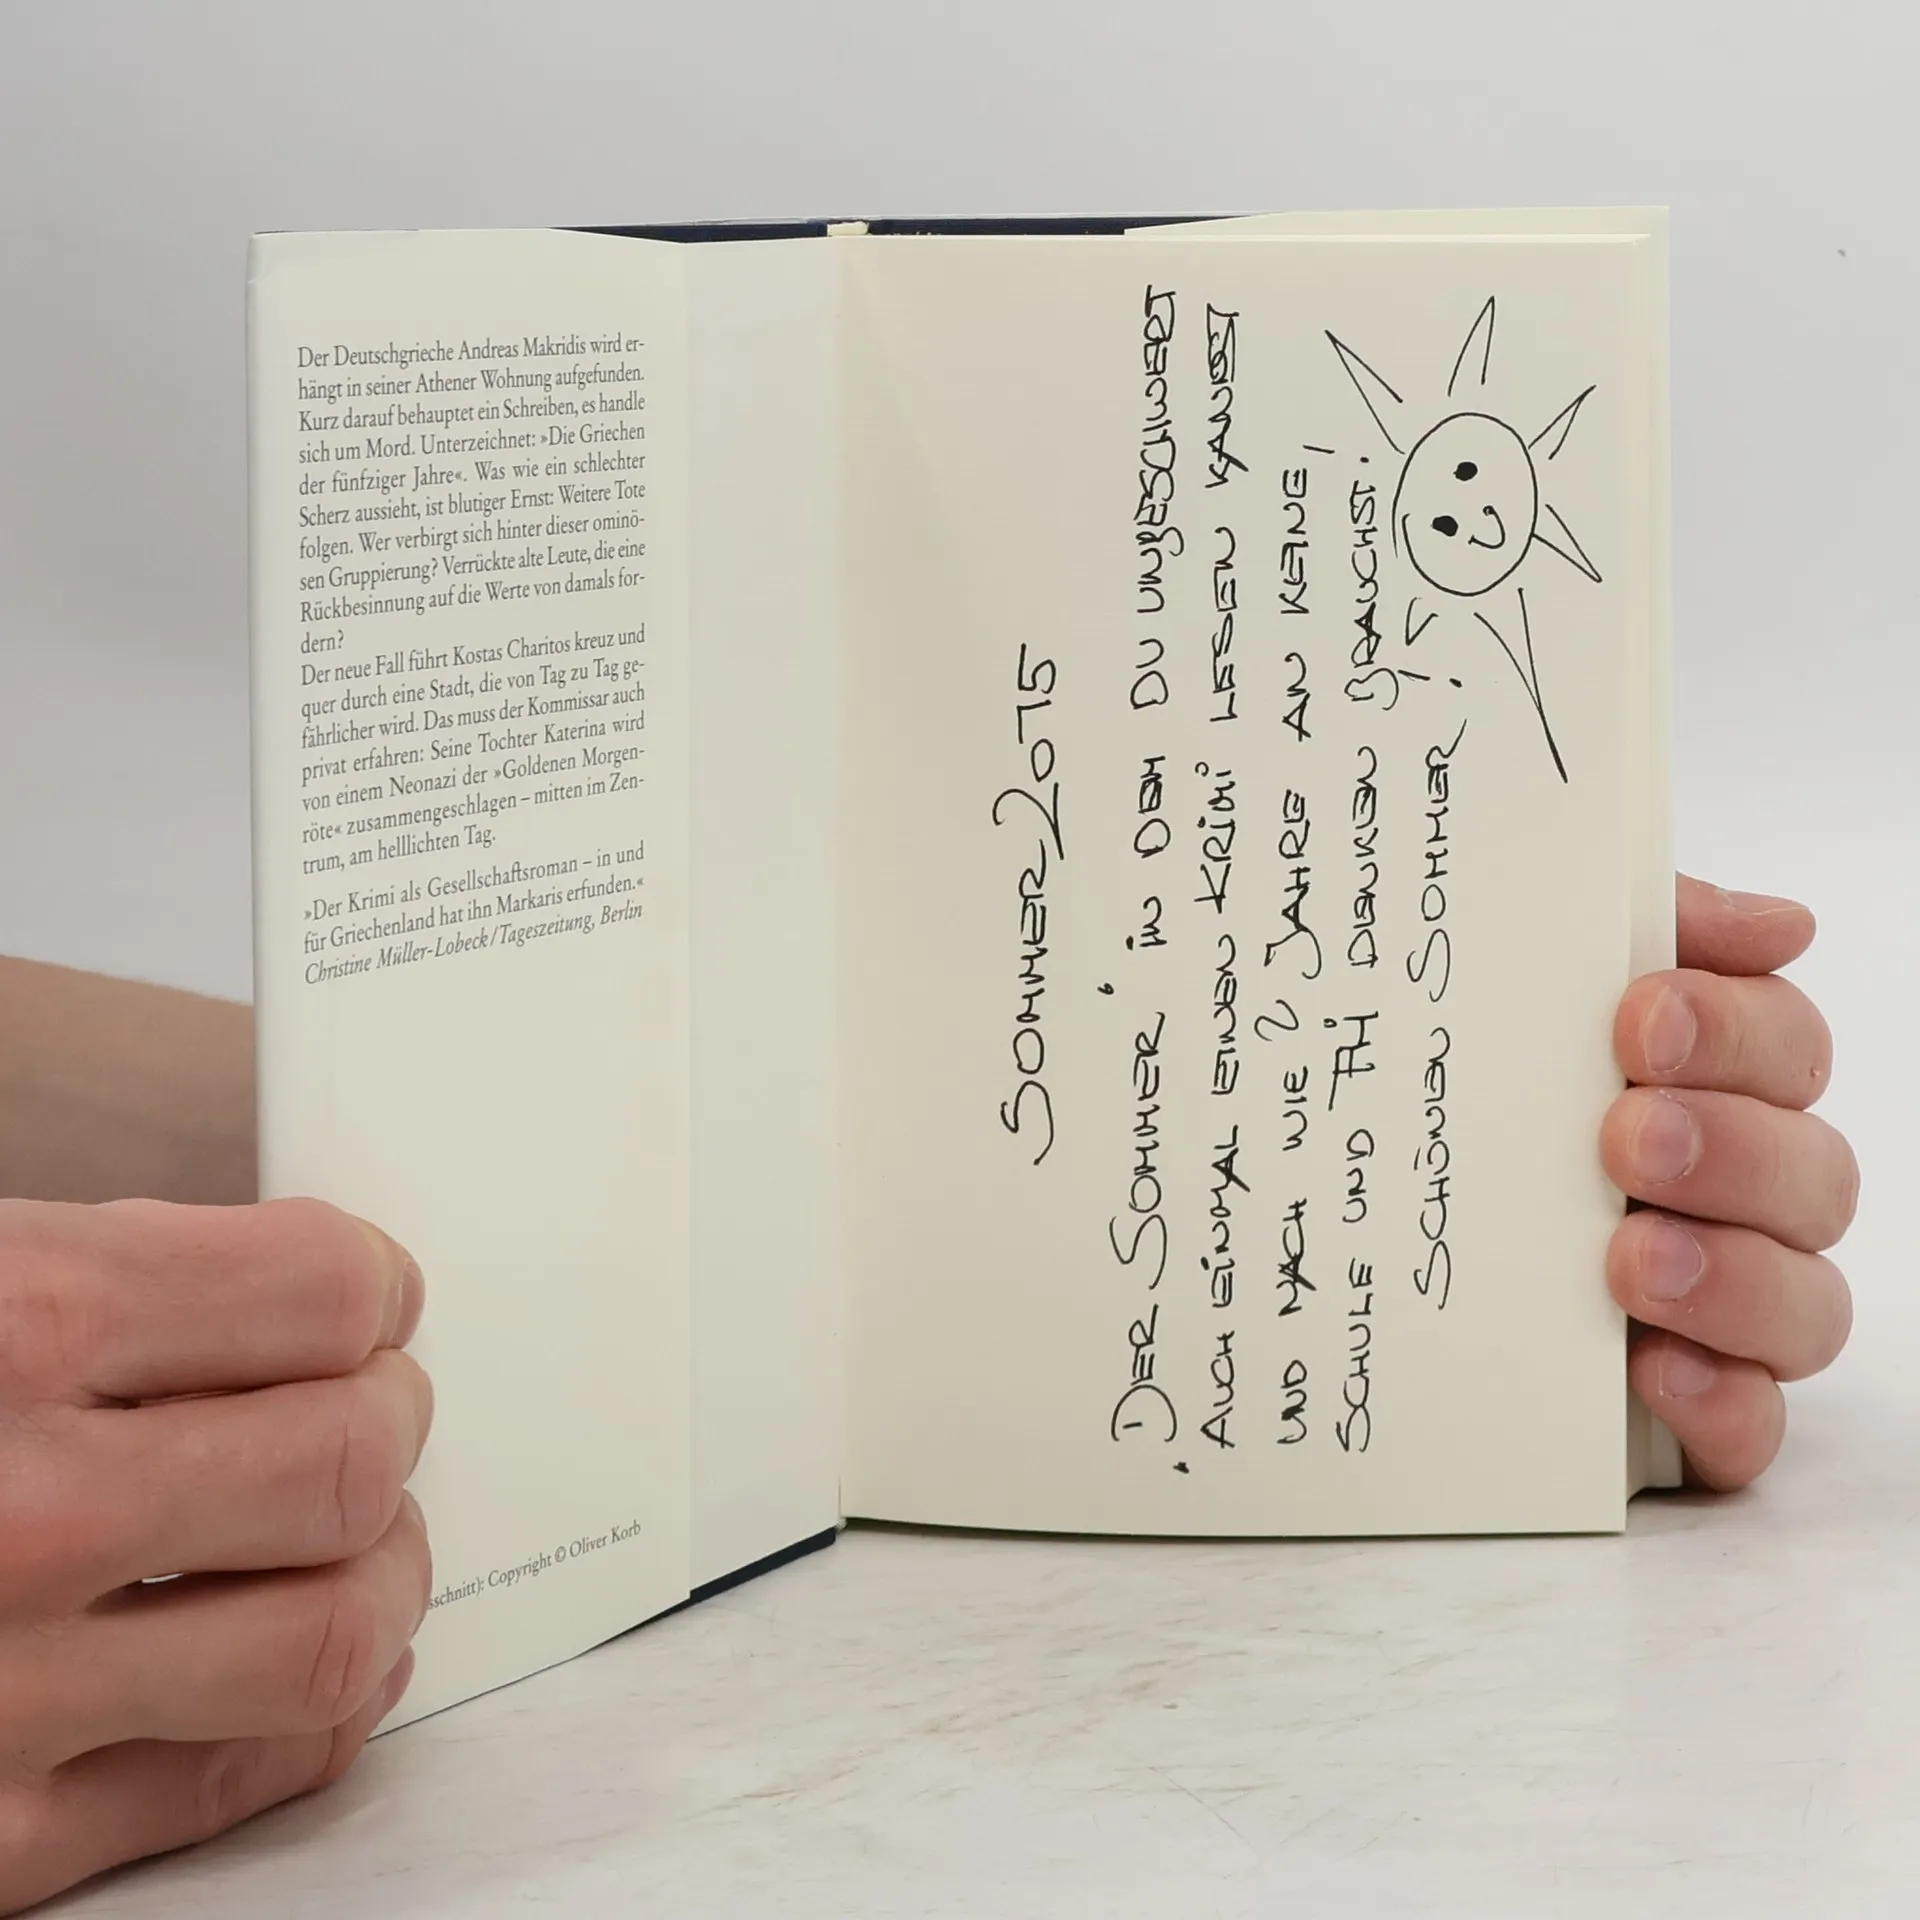 Der Deutschgrieche Andreas Makridis wird er-
hängt in seiner Athener Wohnung aufgefunden.
Kurz darauf behauptet ein Schreiben, es handle
sich um Mord. Unterzeichnet: »Die Griechen
der fünfziger Jahre«. Was wie ein schlechter
Scherz aussieht, ist blutiger Ernst: Weitere Tote
folgen. Wer verbirgt sich hinter dieser ominö-
sen Gruppierung? Verrückte alte Leute, die eine
Rückbesinnung auf die Werte von damals for-
dern?
Der neue Fall führt Kostas Charitos kreuz und
quer durch eine Stadt, die von Tag zu Tag ge-
fährlicher wird. Das muss der Kommissar auch
privat erfahren: Seine Tochter Katerina wird
von einem Neonazi der »Goldenen Morgen-
röte« zusammengeschlagen – mitten im Zen-
trum, am helllichten Tag.
»Der Krimi als Gesellschaftsroman – in und
für Griechenland hat ihn Markaris erfunden.«
Christine Müller-Lobeck/Tageszeitung, Berlin
sschnitt): Copyright © Oliver Korb
SOMMER 2015
"DER SOMMER" IN DEM DU UNBESCHWERT
AUCH EINMAL EINEN KRIMI LESEN KANNST
UND NACH WIE 2 JAHRE AN KEINE,
SCHULE UND DENKEN BRAUCHST.
SCHÖNEN SOMMER!